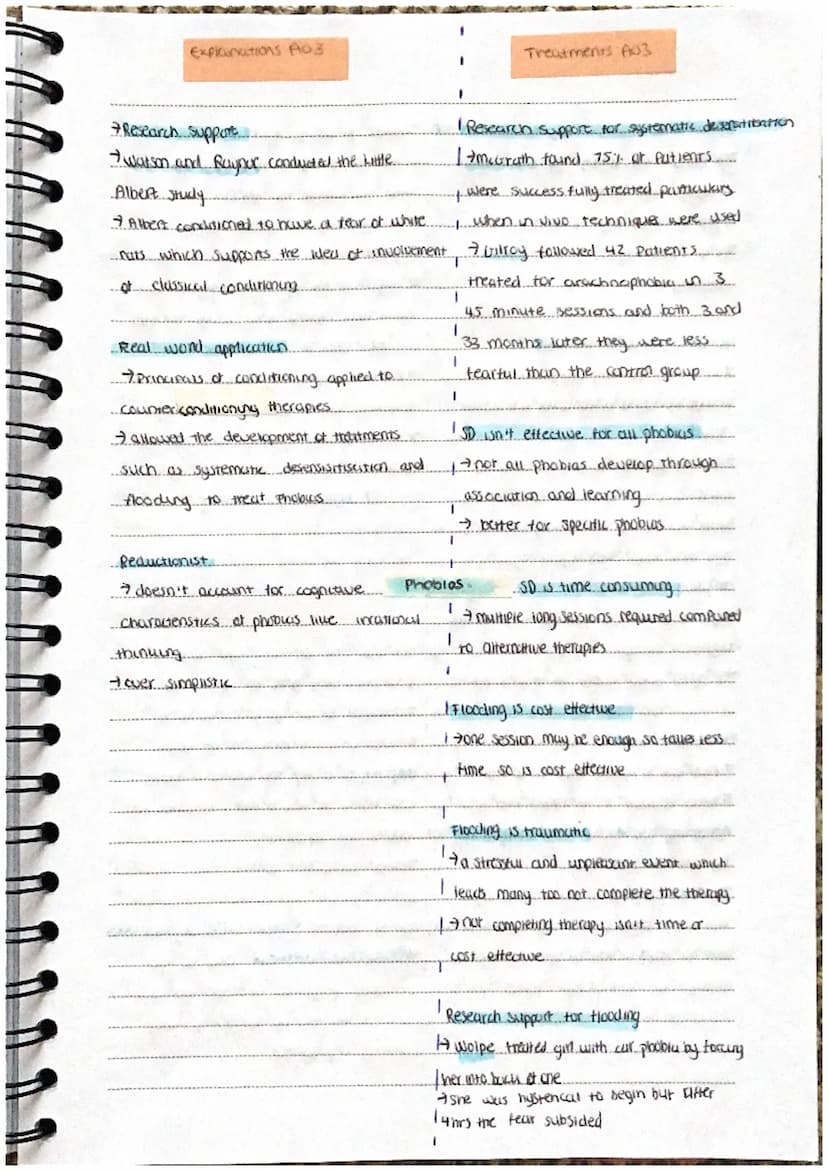 Explanations AO3
→Research support
→Watson and Raynor conducted the Little
Albert study
→ Albert conditioned to have a fear of white
rats which supports the idea of involvement
of classical conditioning
Real word application
→Principals of conditioning applied to
counterconditioning therapies
→ allowed the development of treatments
such as systematic desensitisation and
flooding to treat phobias
Reductionist
→ doesn't account for cognitive
characteristics of phobias like irrational
thinking
→over simplistic
Phobias
Treatments AO3
Research support for systematic desensitisation
→McGrath found 75% of patients
were successfully treated particulary
when in vivo techniques were used
→ Gilroy followed 42 patients
treated for arachnophobia in 3
45 minute sessions and both 3 and
33 months later they were less
fearful than the control group
SD isn't effective for all phobias
→ not all phobias develop through
association and learning
→ better for specific phobias
SD is time consuming
→ multiple long sessions required compared
to alternative therapies
Flooding is cost effective
→one session may be enough so takes less
time so is cost effective
Flooding is traumatic
→a stressful and unpleasant event which
leads many too not complete the therapy
→ not completing therapy isn't time or
cost effective
Research support for flooding
→ Wolpe treated girl with car phobia by forcing
her into back of one
→she was hysterical to begin but after
4hrs the fear subsided